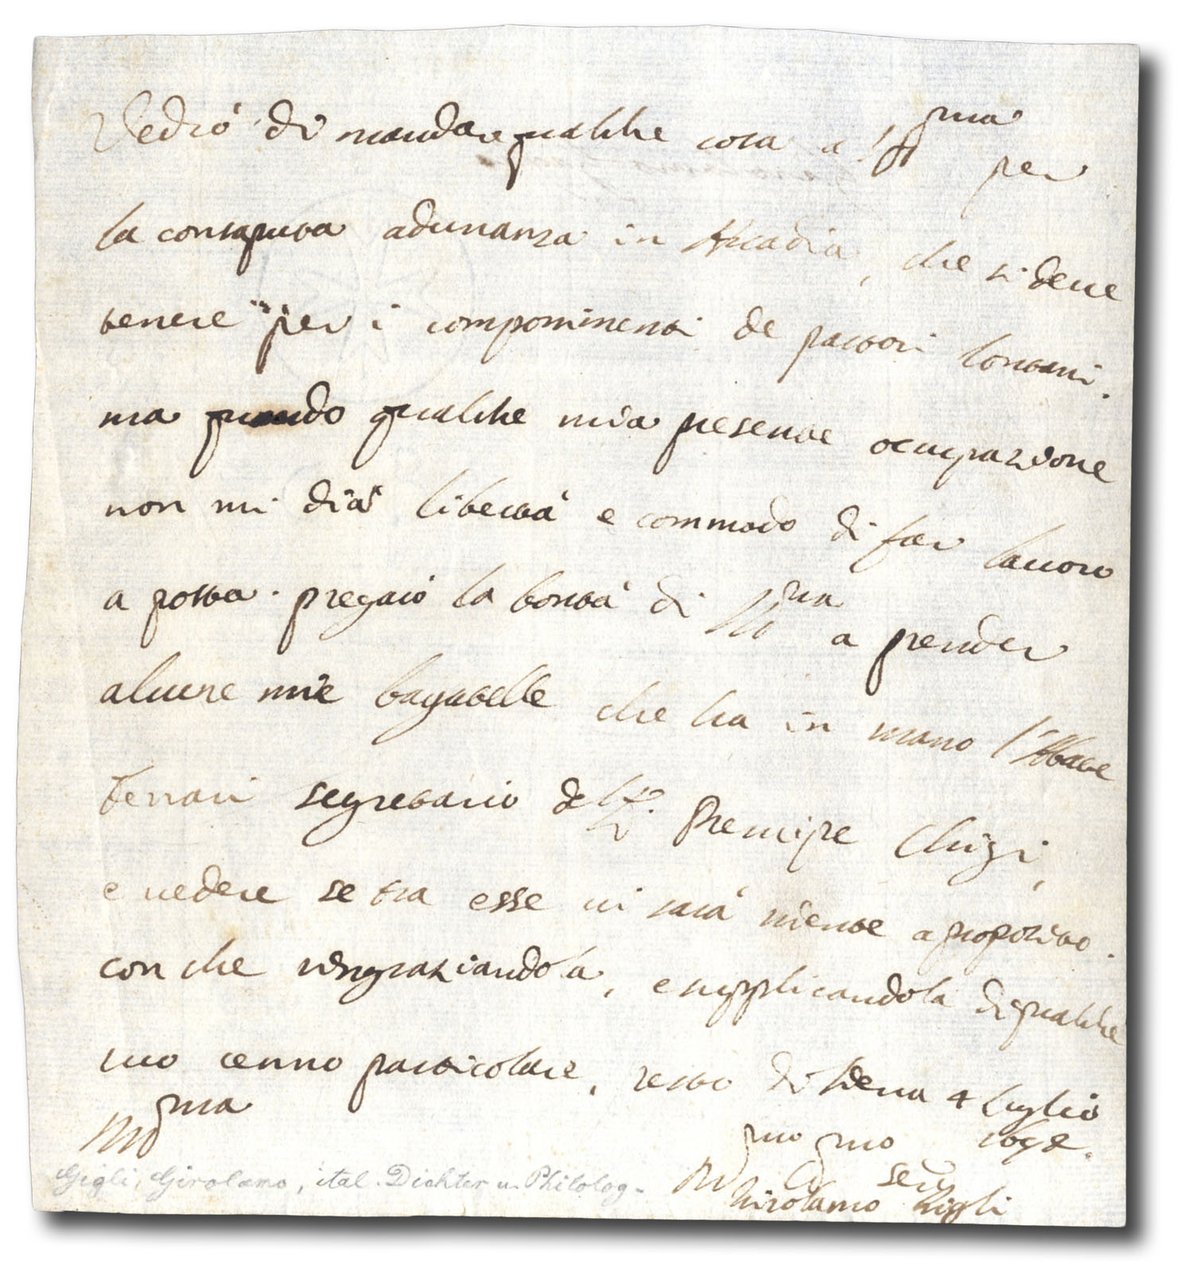 Vedrò di mandar qualche cosa a V.S. Ill.ma per
la consaputa adunanza in Arcadia, che si deve
tenere per i componimenti de pastori lontani.
ma quando qualche mia presente ocupazione
non mi dia libertà e commodo di far lavoro
a posta. pregaiò la bontà di V.S. Ill.ma a prender
alcune mie bagatelle che ha in mano l'Abbate
Ferrari segretario del Sr. Prencipe Chigi,
e vedere se tra esse vi sarà niente a proposito.
con che ringraziandola, e supplicandola di qualche
suo cenno particolare, resto di Siena 4 luglio
1698.
Gigli, Girolamo, ital. Dichter u. Philolog.
Girolamo Gigli